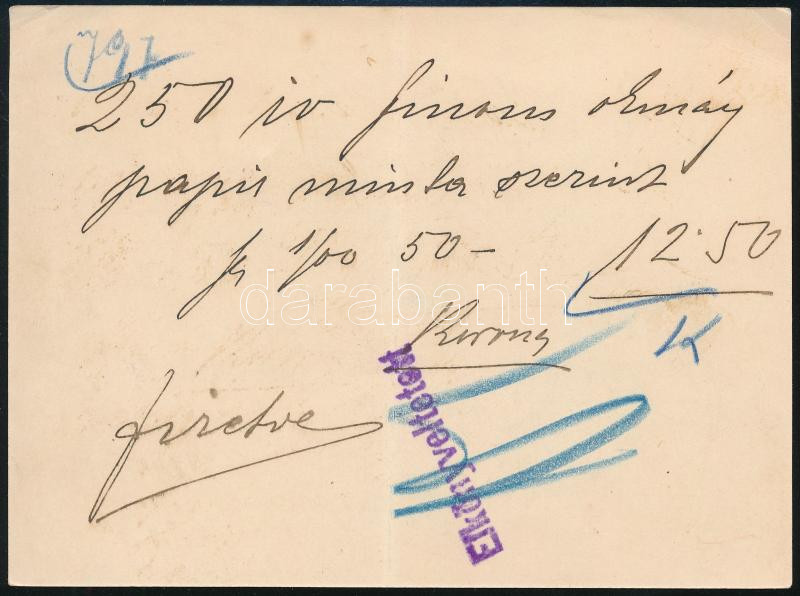 250 ív finom okmány
papir minta szerint
1/00 50 – 12·50
Korona
K
fizetve
Elkönyveltetett
darabanth